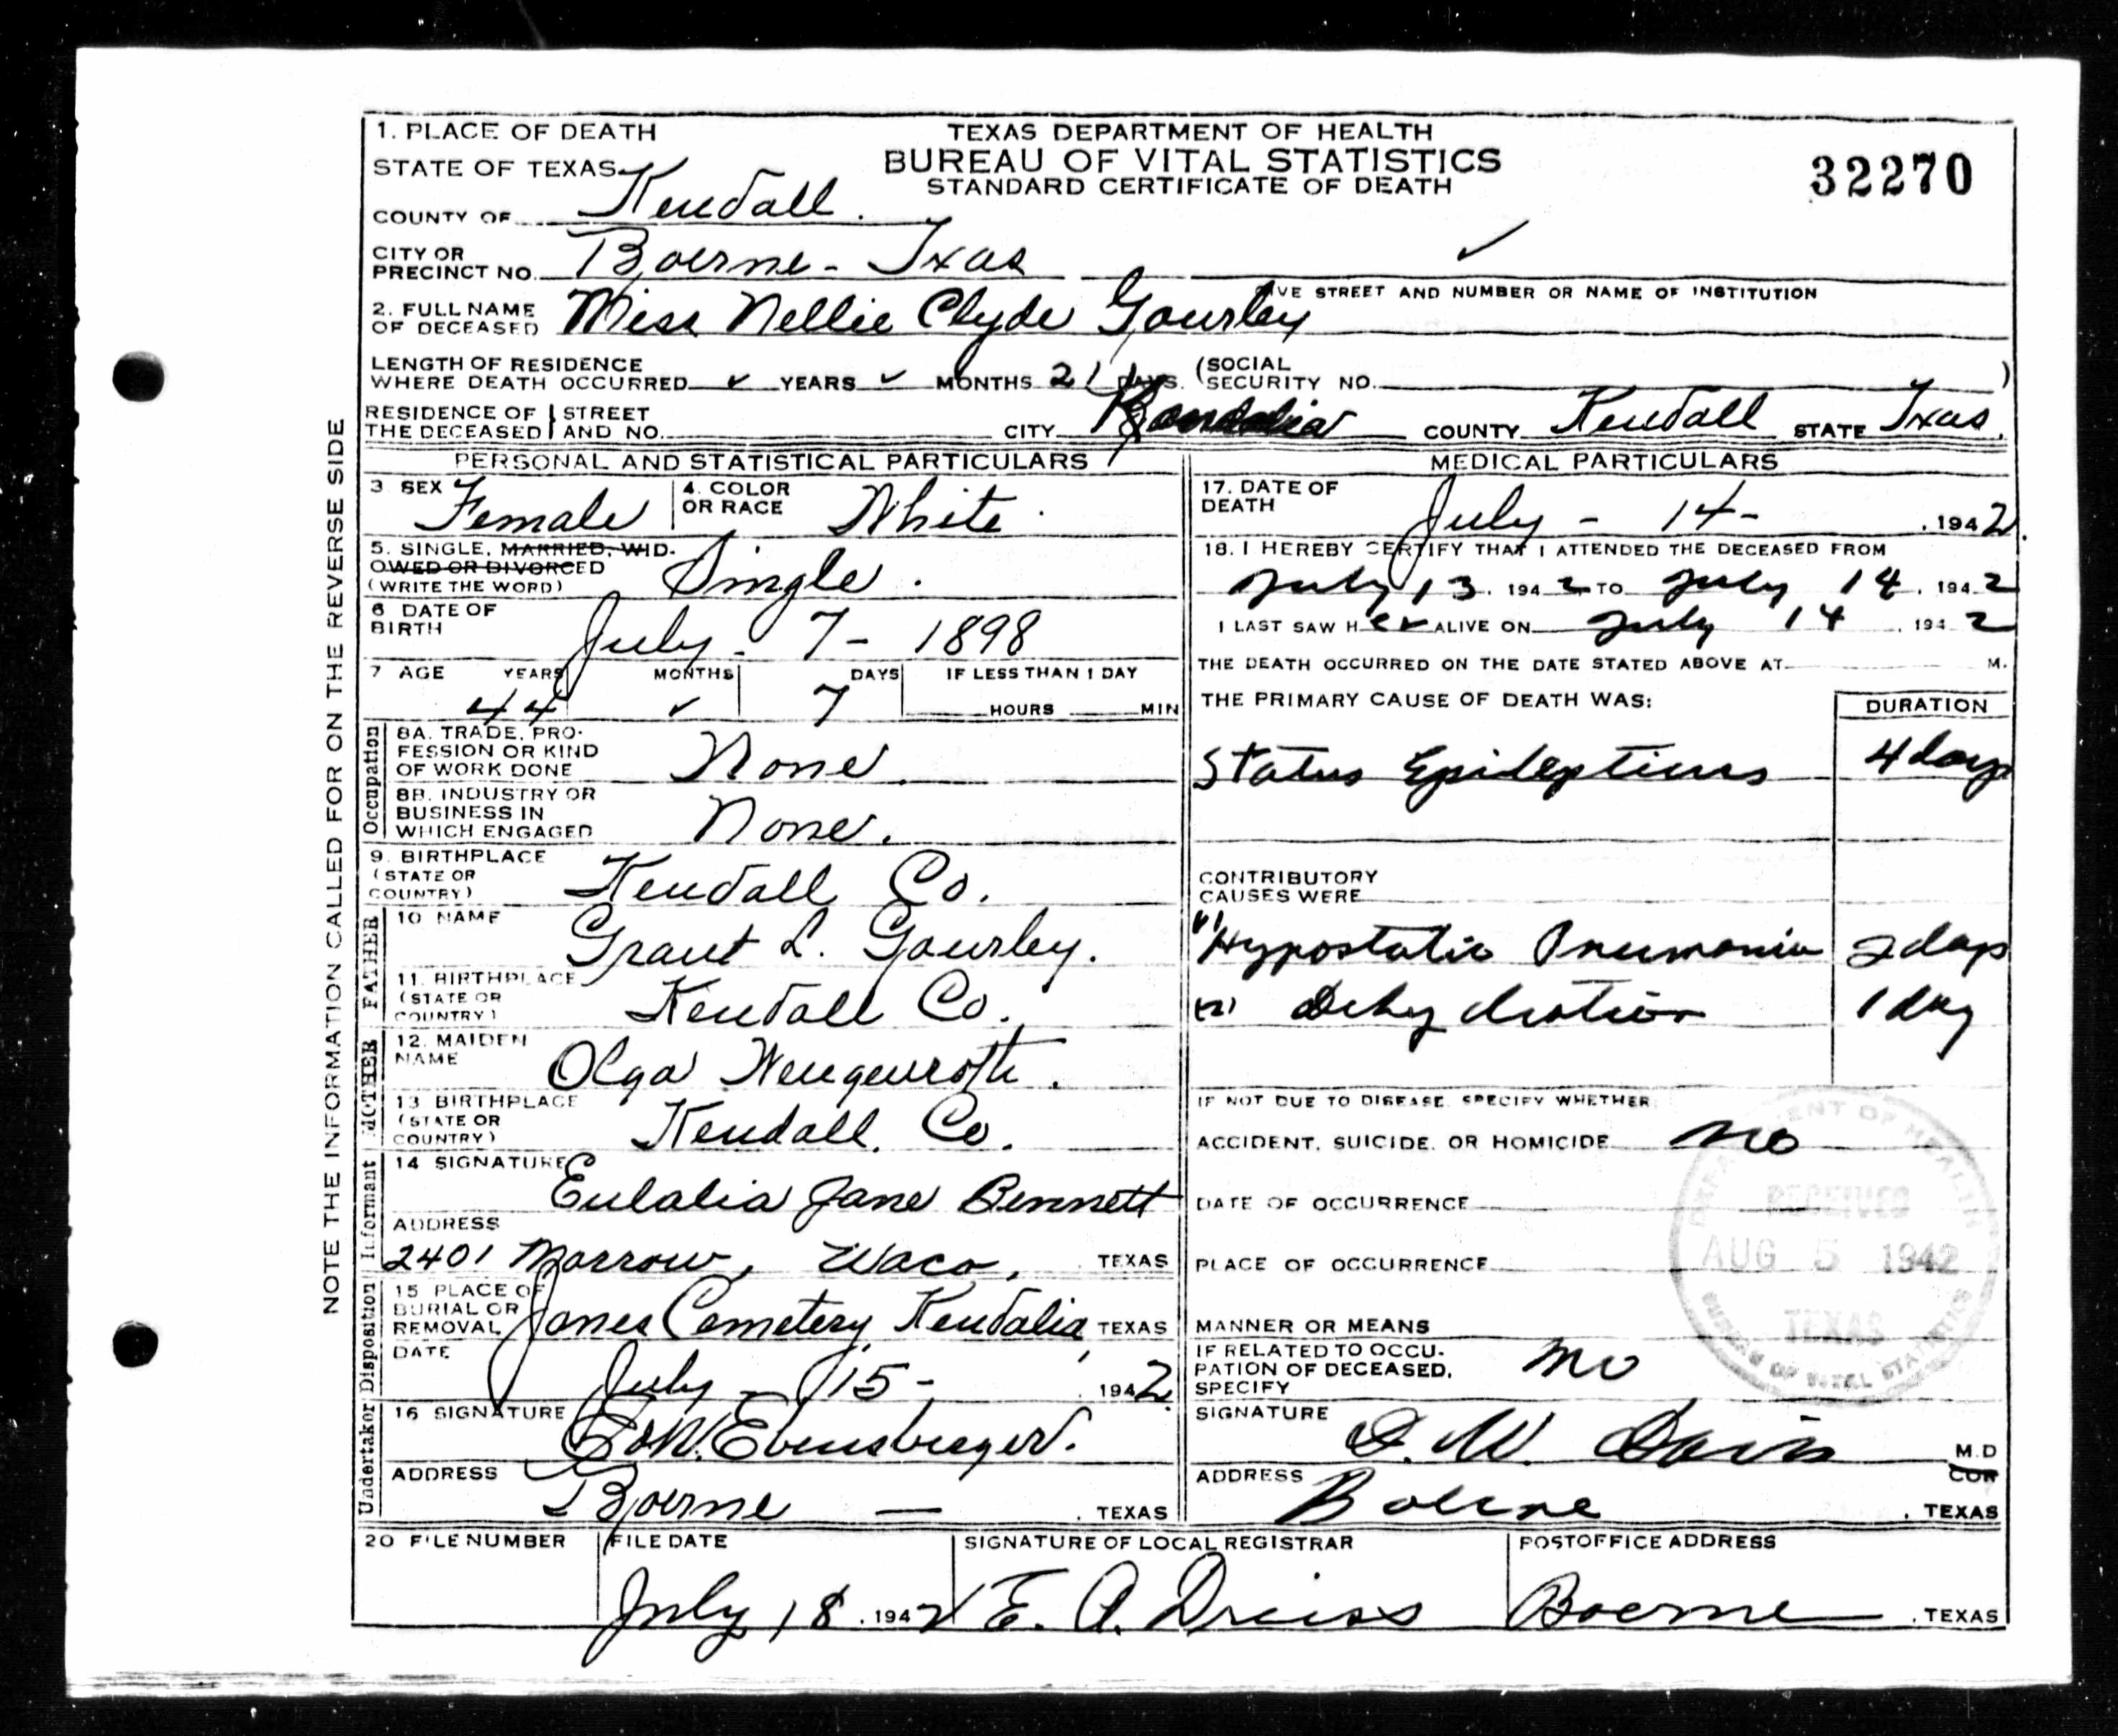 1. PLACE OF DEATH
TEXAS DEPARTMENT OF HEALTH
BUREAU OF VITAL STATISTICS
STANDARD CERTIFICATE OF DEATH
32270
STATE OF TEXAS
COUNTY OF Kendall.
CITY OR PRECINCT NO. Boerne - Txas
GIVE STREET AND NUMBER OR NAME OF INSTITUTION
2. FULL NAME OF DECEASED Miss Nellie Clyde Gourley
LENGTH OF RESIDENCE
WHERE DEATH OCCURRED ✓ YEARS ✓ MONTHS 21 DAYS. (SOCIAL SECURITY NO. )
RESIDENCE OF THE DECEASED STREET AND NO. CITY COUNTY Kendall STATE Txas.
PERSONAL AND STATISTICAL PARTICULARS
3 SEX Female 4. COLOR OR RACE White
5. SINGLE, MARRIED, WIDOWED OR DIVORCED (WRITE THE WORD) Single.
6 DATE OF BIRTH July - 7 - 1898
7 AGE YEARS 44 MONTHS ✓ DAYS 7 IF LESS THAN 1 DAY HOURS MIN
Occupation
8A. TRADE, PROFESSION OR KIND OF WORK DONE None
8B. INDUSTRY OR BUSINESS IN WHICH ENGAGED None.
9. BIRTHPLACE (STATE OR COUNTRY) Kendall Co.
FATHER
10 NAME Grant L. Gourley.
11. BIRTHPLACE (STATE OR COUNTRY) Kendall Co.
MOTHER
12. MAIDEN NAME Olga Wengenroth.
13 BIRTHPLACE (STATE OR COUNTRY) Kendall. Co.
Informant
14 SIGNATURE Eulalia Jane Bennett
ADDRESS 2401 Morrow, Waco, TEXAS
Disposition
15 PLACE OF BURIAL OR REMOVAL Jones Cemetery, Kendalia, TEXAS
DATE July - 15 - , 1942
Undertaker
16 SIGNATURE Ebensberger.
ADDRESS Boerne — . TEXAS
MEDICAL PARTICULARS
17. DATE OF DEATH July - 14 - , 1942.
18. I HEREBY CERTIFY THAT I ATTENDED THE DECEASED FROM
July 13, 1942 TO July 14, 1942
I LAST SAW HER ALIVE ON July 14, 1942
THE DEATH OCCURRED ON THE DATE STATED ABOVE AT M.
THE PRIMARY CAUSE OF DEATH WAS: DURATION
Status Epilepticus 4 days
CONTRIBUTORY CAUSES WERE
(1) Hypostatic Pneumonia 2 days
(2) Dehydration 1 day
IF NOT DUE TO DISEASE, SPECIFY WHETHER:
ACCIDENT, SUICIDE, OR HOMICIDE no
DATE OF OCCURRENCE
PLACE OF OCCURRENCE
MANNER OR MEANS
IF RELATED TO OCCUPATION OF DECEASED, SPECIFY no
SIGNATURE Davis M.D
COR
ADDRESS Boerne, TEXAS
DEPARTMENT OF HEALTH
RECEIVED
AUG 5 1942
TEXAS
BUREAU OF VITAL STATISTICS
20 FILE NUMBER
FILE DATE July 18, 1942
SIGNATURE OF LOCAL REGISTRAR E. A. Dreiss
POSTOFFICE ADDRESS Boerne, TEXAS
NOTE THE INFORMATION CALLED FOR ON THE REVERSE SIDE